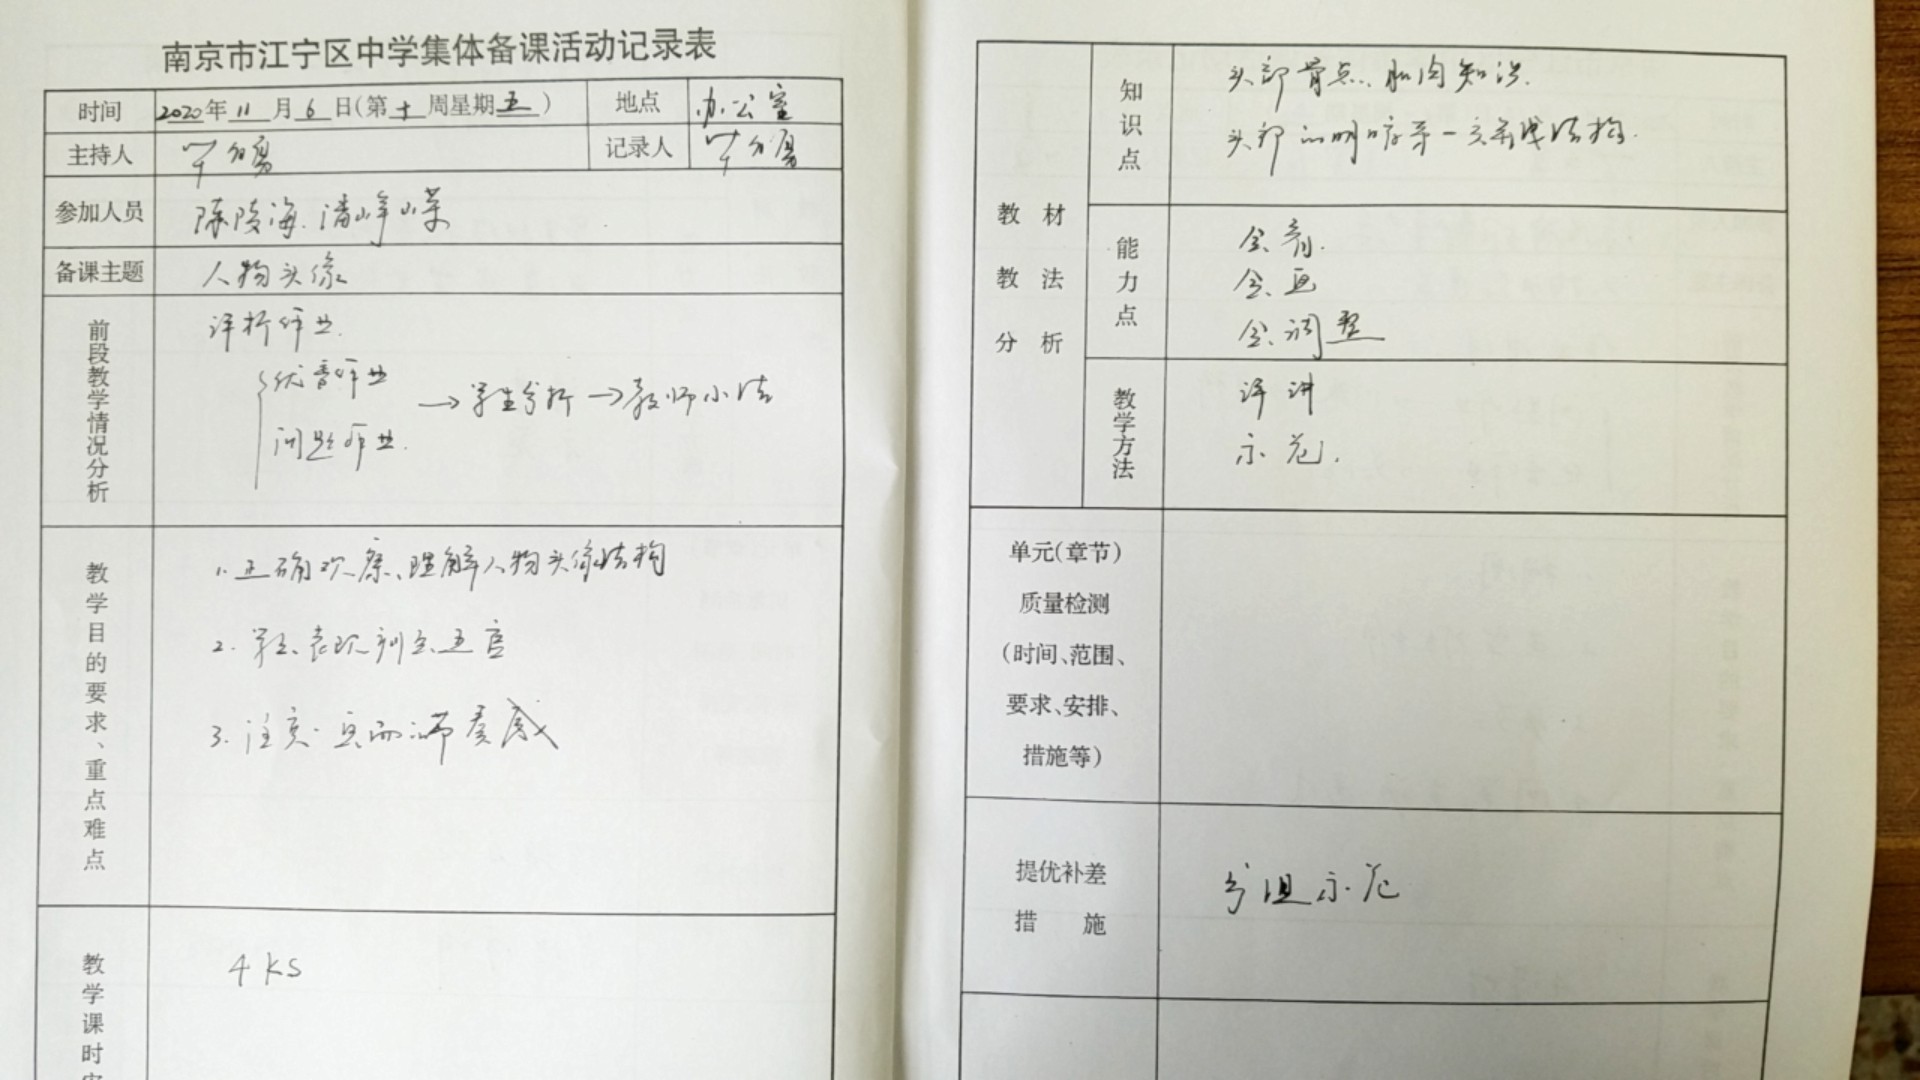 南京市江宁区中学集体备课活动记录表
时间 2020年11月6日(第十周星期五) 地点 办公室
主持人 记录人
参加人员 陈陵海、潘峰
备课主题 人物头像
前段教学情况分析
评析作业.
优秀作业
→学生分析→教师小结
问题作业.
教学目的要求、重点难点
1.正确观察、理解人物头像结构
2.学会表现刻画五官
3.注意画面节奏感
教学课时安
4 KS
教材教法分析
知识点
头部骨点、肌肉知识.
头部的明暗交界线结构.
能力点
会看.
会画
会调整
教学方法
评讲
示范.
单元(章节)
质量检测
(时间、范围、
要求、安排、
措施等)
提优补差
措施
分组示范